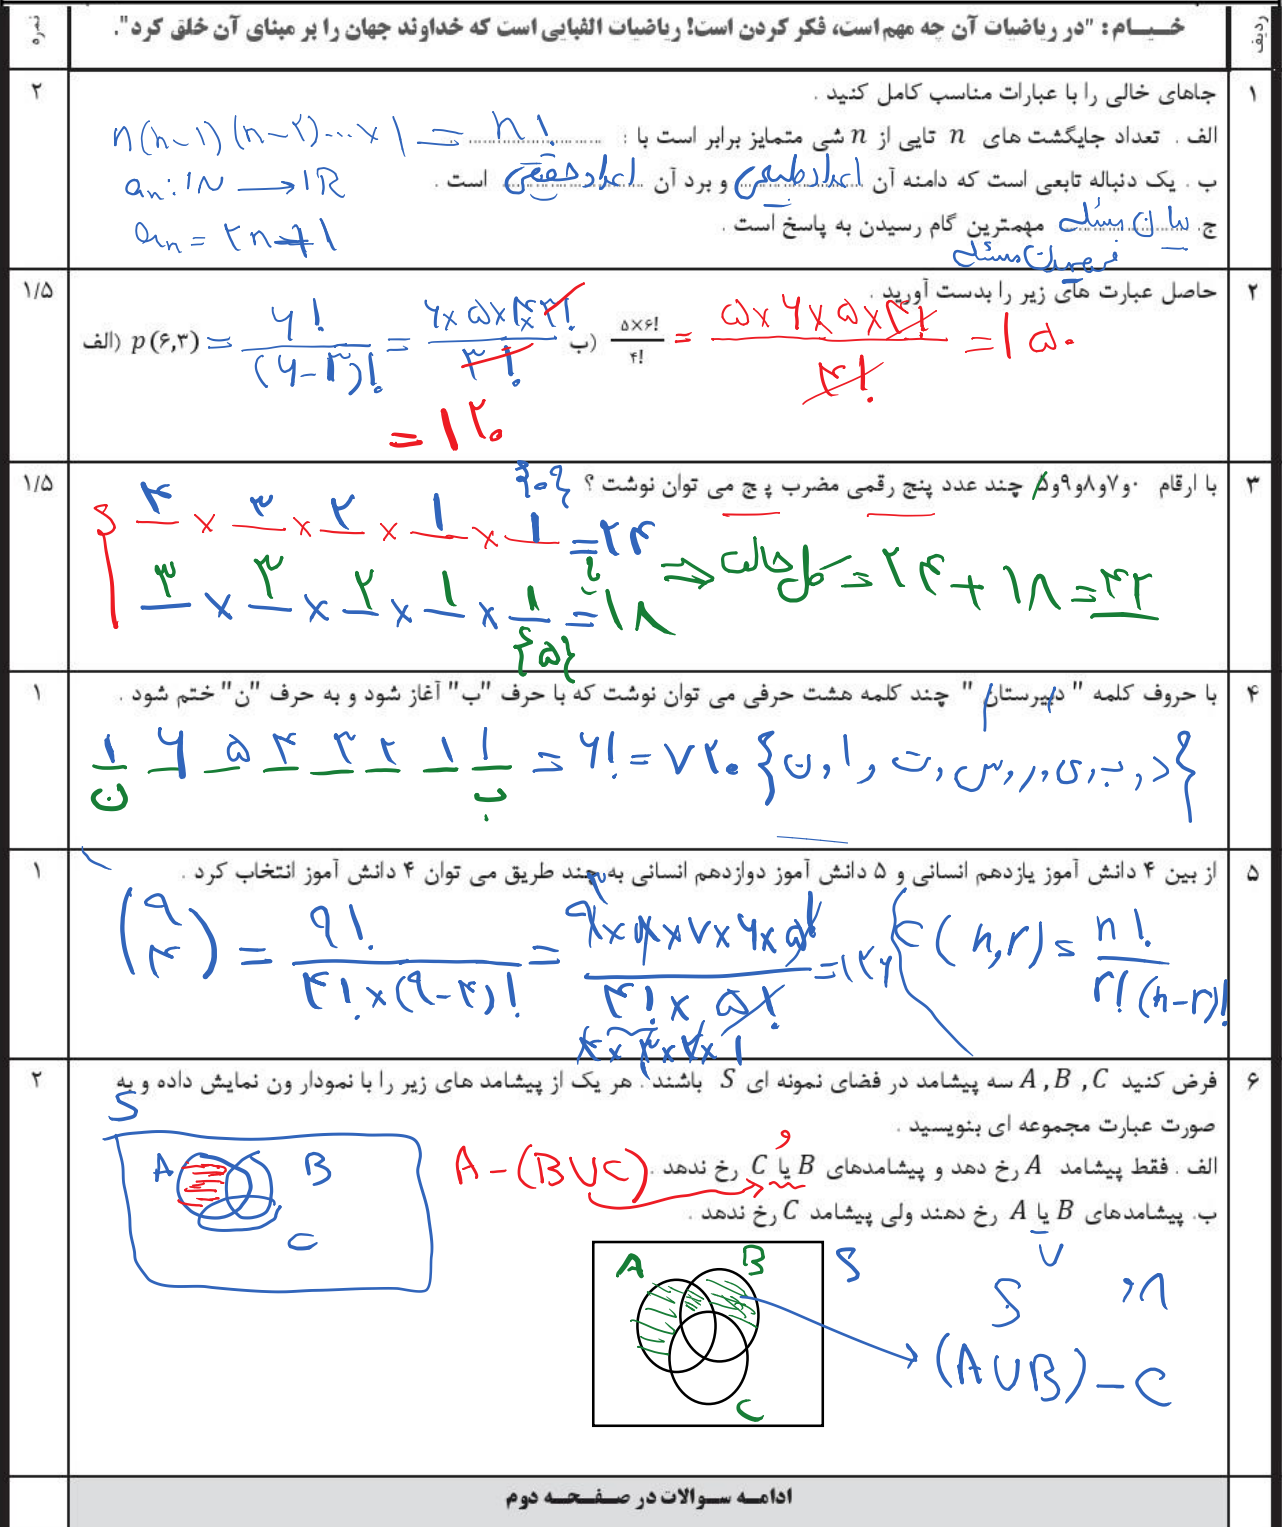 ردیف
خـیـــام : "در ریاضیات آن چه مهم است، فکر کردن است! ریاضیات الفبایی است که خداوند جهان را بر مبنای آن خلق کرد".
نمره
۱
جاهای خالی را با عبارات مناسب کامل کنید .
۲
الف . تعداد جایگشت های n تایی از n شی متمایز برابر است با : n! = n(n-1)(n-2)...×1
ب . یک دنباله تابعی است که دامنه آن اعداد طبیعی و برد آن اعداد حقیقی است .
an : IN → IR
ج. بیان مسئله مهمترین گام رسیدن به پاسخ است .
an = 2n+1
فهمیدن مسئله
۲
حاصل عبارت های زیر را بدست آورید .
۱/۵
الف) p(۶,۳) = ۶! / (۶-۳)! = ۶×۵×۴×۳! / ۳! = ۱۲۰
ب) ۵×۶! / ۴! = ۵×۶×۵×۴! / ۴! = ۱۵۰
۳
با ارقام ۰و۷و۸و۹و۵ چند عدد پنج رقمی مضرب پنج می توان نوشت ؟
۱/۵
۴ × ۳ × ۲ × ۱ × ۱ = ۲۴ {۰}
۳ × ۳ × ۲ × ۱ × ۱ = ۱۸ {۵}
⇒ کل حالت = ۲۴ + ۱۸ = ۴۲
۴
با حروف کلمه " دبیرستان " چند کلمه هشت حرفی می توان نوشت که با حرف "ب" آغاز شود و به حرف "ن" ختم شود .
۱
{د , ب , ی , ر , س , ت , ا , ن}
۱ ۶ ۵ ۴ ۳ ۲ ۱ ۱ = ۶! = ۷۲۰
ن ب
۵
از بین ۴ دانش آموز یازدهم انسانی و ۵ دانش آموز دوازدهم انسانی به چند طریق می توان ۴ دانش آموز انتخاب کرد .
۱
(۹ ۴) = ۹! / ۴!×(۹-۴)! = ۹×۸×۷×۶×۵! / ۴!×۵! = ۱۲۶
۴×۳×۲×۱
C(n,r) = n! / r!(n-r)!
۶
فرض کنید A , B , C سه پیشامد در فضای نمونه ای S باشند . هر یک از پیشامد های زیر را با نمودار ون نمایش داده و به
۲
صورت عبارت مجموعه ای بنویسید .
الف . فقط پیشامد A رخ دهد و پیشامدهای B یا C رخ ندهد .
و
A - (B∪C)
S
A B
C
ب. پیشامدهای B یا A رخ دهند ولی پیشامد C رخ ندهد .
∪
A B
C
S
(A∪B) - C
ادامــه ســوالات در صــفــحــه دوم